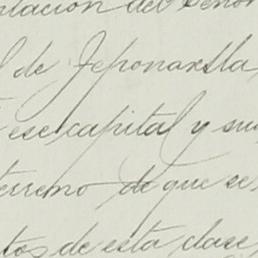 ntación del Señor
l de Jeponaxtla
ese capital y su
terreno de que se
tos de esta clase